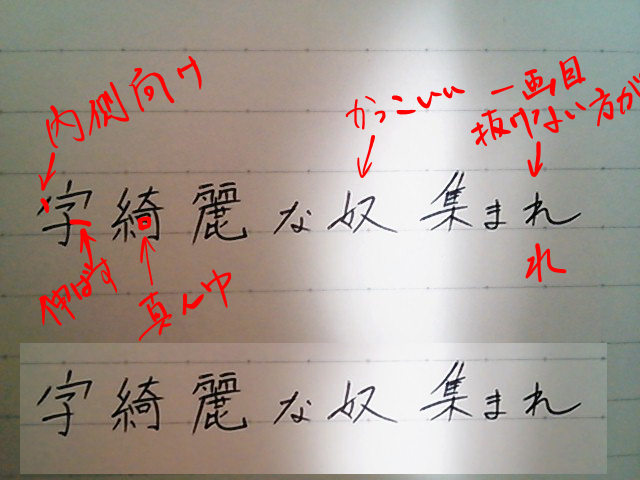 内側向け
かっこいい
一画目
抜けない方が
字綺麗な奴集まれ
伸ばす
真ん中
れ
字綺麗な奴集まれ